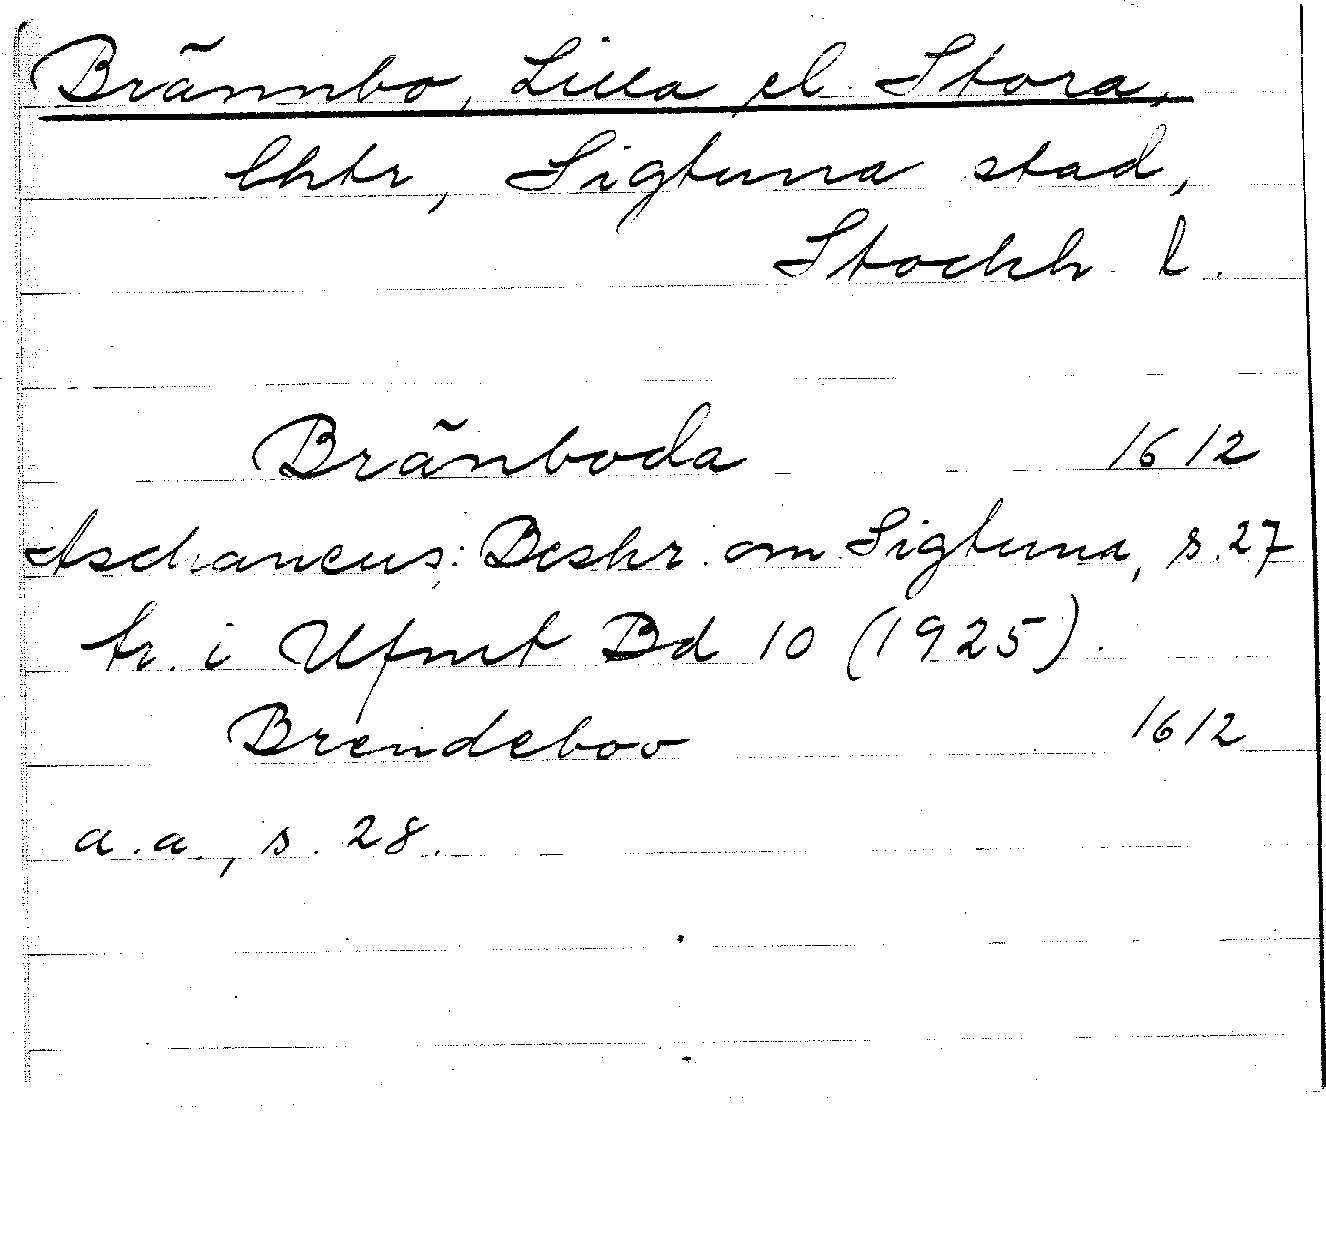 Brännbo, Lilla el. Stora,
lhtr, Sigtuna stad,
Stockh. l.
Bränboda 1612
Aschaneus: Beskr. om Sigtuna, s. 27
tr. i Ufmt Bd 10 (1925).
Brendeboo 1612
a.a., s. 28.